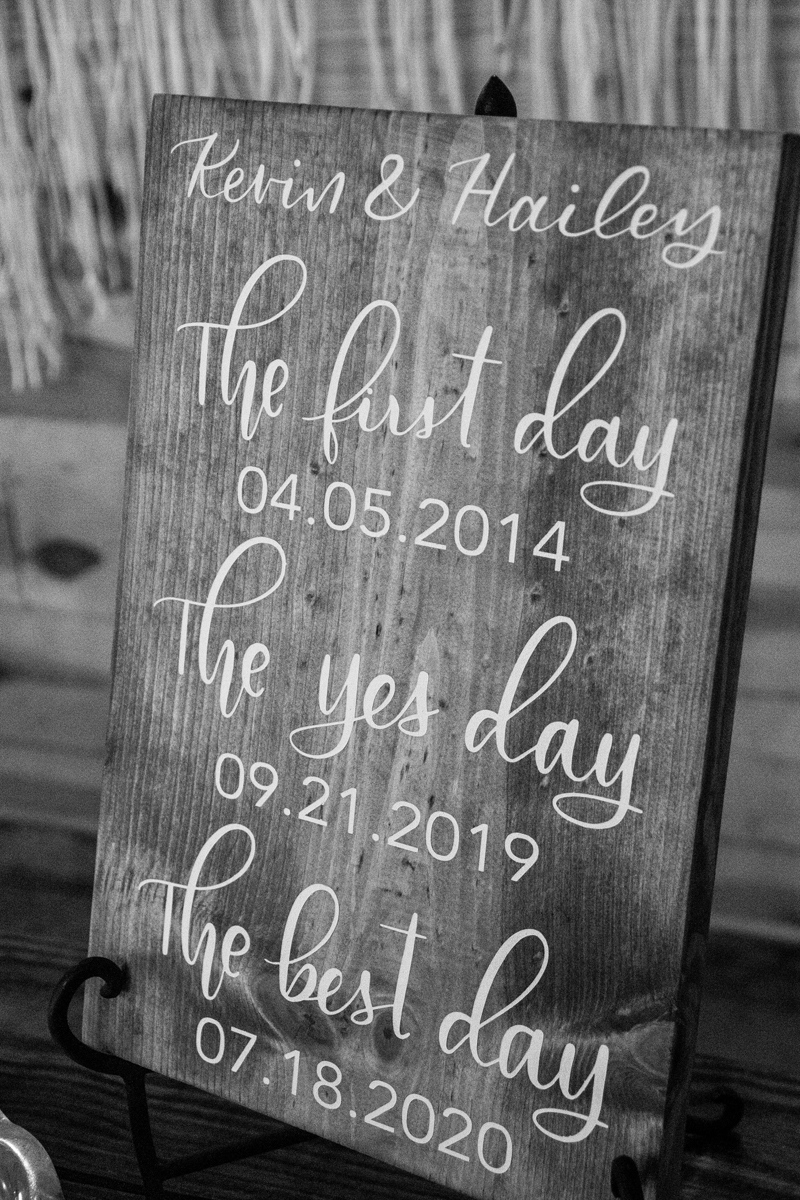 Kevin & Hailey
The first day
04.05.2014
The yes day
09.21.2019
The best day
07.18.2020